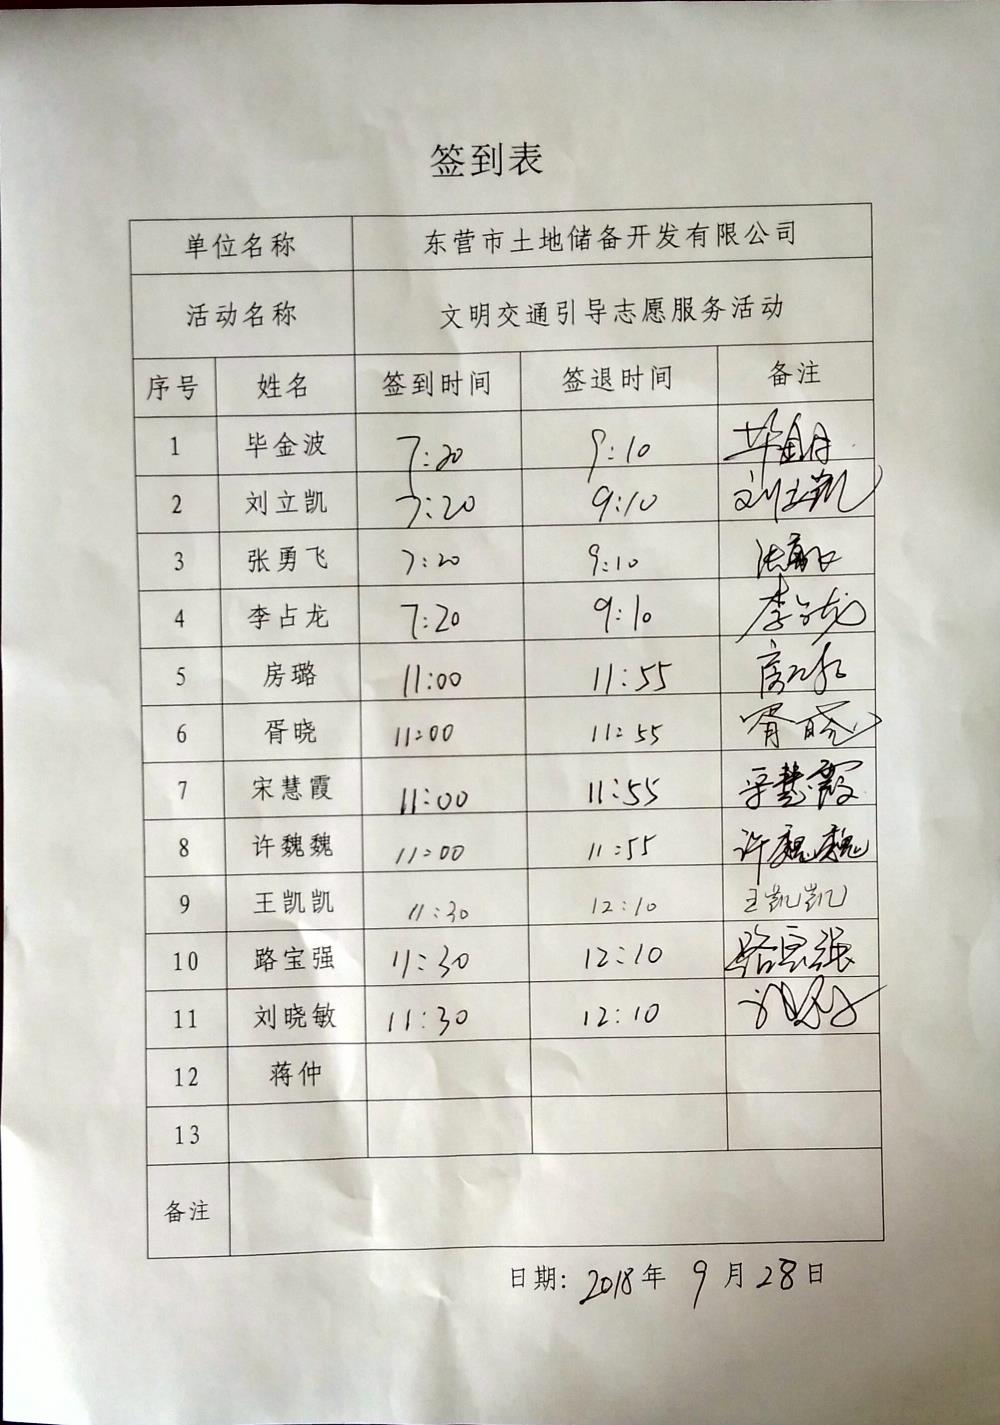 签到表
单位名称 东营市土地储备开发有限公司
活动名称 文明交通引导志愿服务活动
序号 姓名 签到时间 签退时间 备注
1 毕金波 7:20 9:10
2 刘立凯 7:20 9:10 刘立凯
3 张勇飞 7:20 9:10
4 李占龙 7:20 9:10 李占龙
5 房璐 11:00 11:55 房璐
6 胥晓 11:00 11:55 胥晓
7 宋慧霞 11:00 11:55 宋慧霞
8 许魏魏 11:00 11:55 许魏魏
9 王凯凯 11:30 12:10 王凯凯
10 路宝强 11:30 12:10 路宝强
11 刘晓敏 11:30 12:10
12 蒋仲
13
备注
日期: 2018年 9月28日